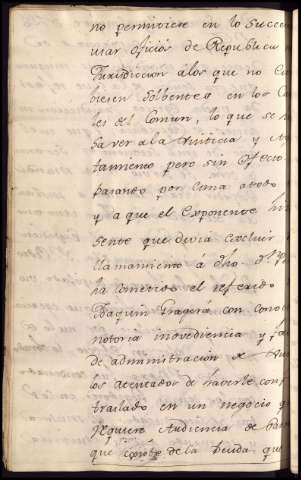 no permitiese en lo succe
usar oficios de Republica
Jurisdiccion á los que no es
biesen Solbentes en los Ca
les del Comun, lo que se
saver a la Justicia y Ay
tamiento pero sin efecto
pasando por cima de todo
y a que el Exponente hi
sente que devia excluir
llamamiento á dho. dn.
ha cometido el referido
Joaquin Fragera con cono
notoria inovediencia y fa
de administracion de Jus
los atentados de haverle con
traslado en un negocio q
requiere Audiencia de
que conste de la Deuda, que